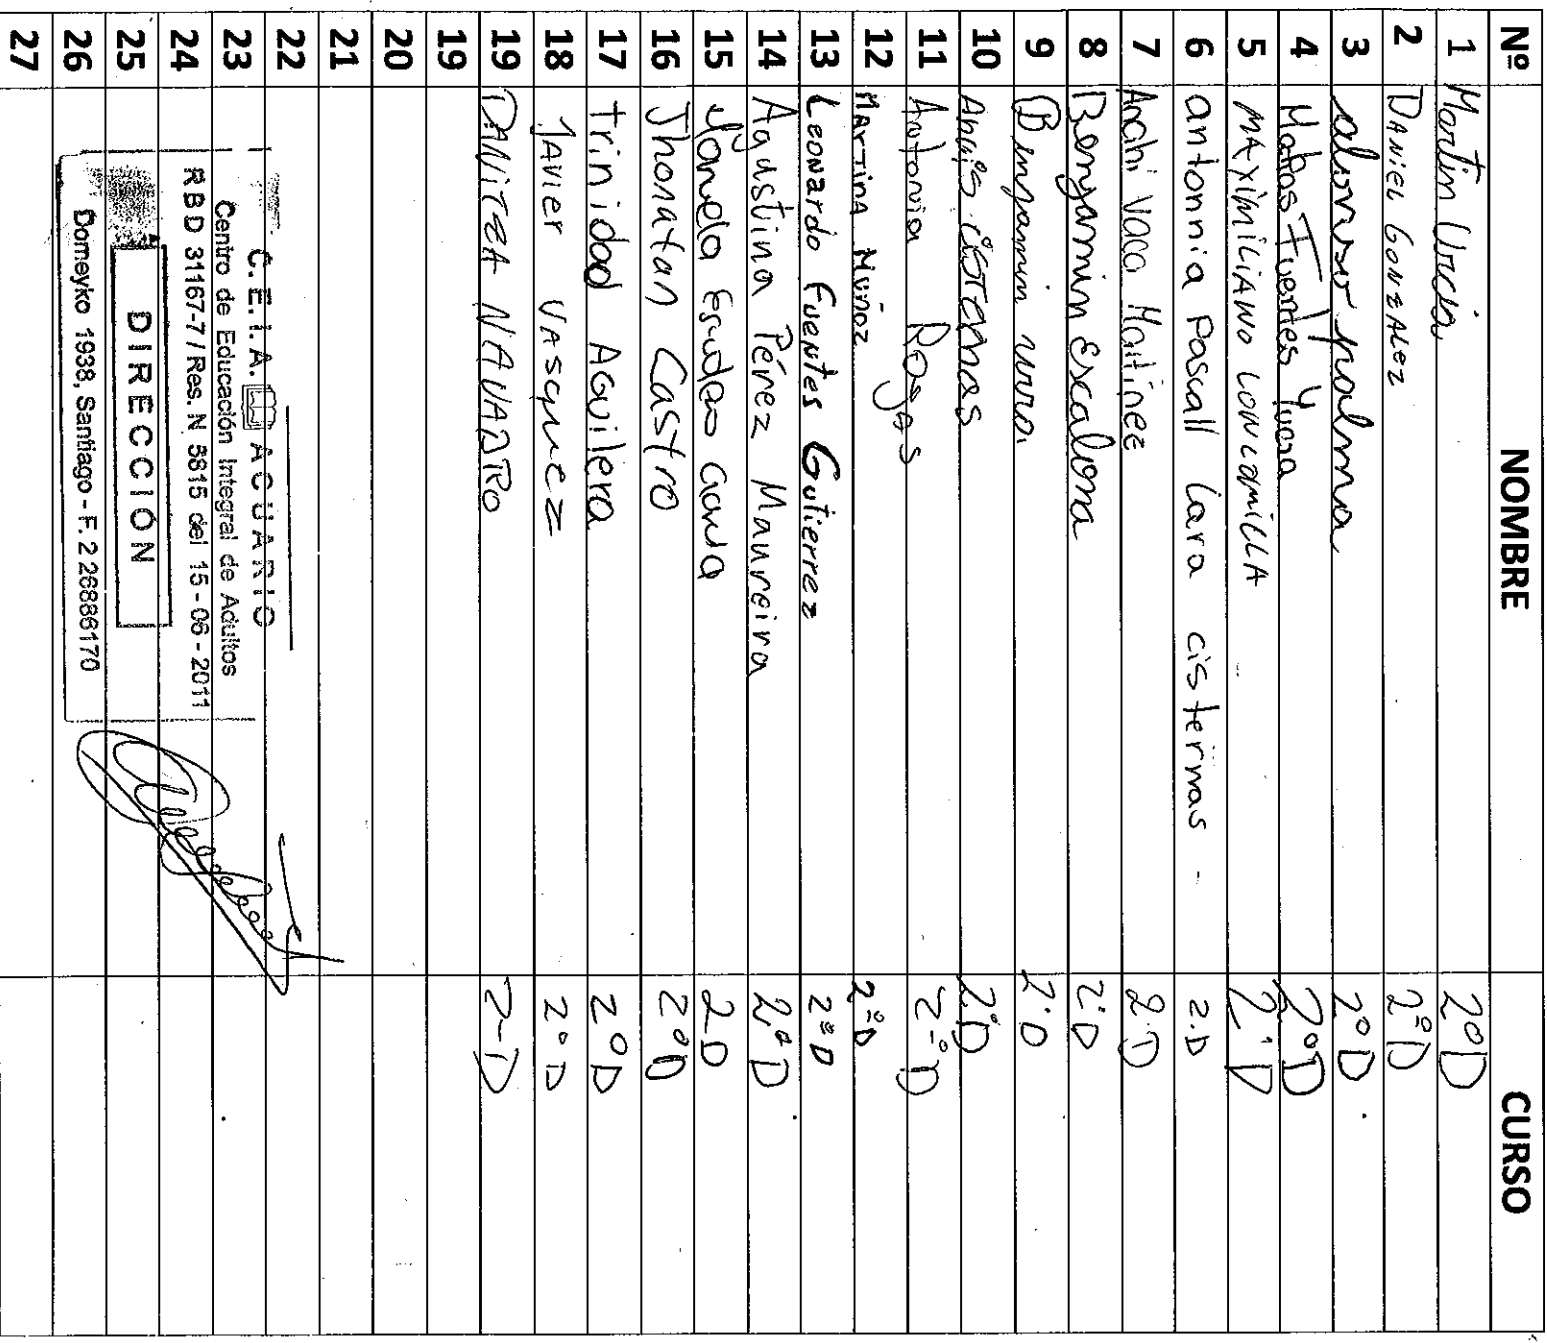 Nº NOMBRE CURSO
1 Martin Urcia 2ºD
2 DANIEL GONZALEZ 2ºD
3 alonso palma 2ºD.
4 Matias Fuentes 2ºD
5 MAXIMILIANO LONCOMILLA 2'D
6 antonnia Pascall Lara cisternas - 2.D
7 Anahi Vaca Martinez 2.D
8 Benjamin Escalona 2'D
9 Benjamin 2'D
10 Anais CISTERNAS 2ºD
11 Antonia Rojas 2-ºD
12 MARTINA MUÑOZ 2ºD
13 Leonardo Fuentes Gutierrez 2ºD
14 Agustina Pérez Maureira 2ºD
15 Escudero 2D
16 Jhonatan Castro 2ºD
17 trinidad Aguilera 2ºD
18 JAVIER VASQUEZ 2ºD
19 DANITZA NAVARRO 2-D
19
20
21
22
23
24
25
26
27
C.E.I.A. ACUARIO
Centro de Educación Integral de Adultos
RBD 31167-7 / Res. N 5815 del 15 - 06 - 2011
DIRECCIÓN
Domeyko 1938, Santiago - F. 2 26886170